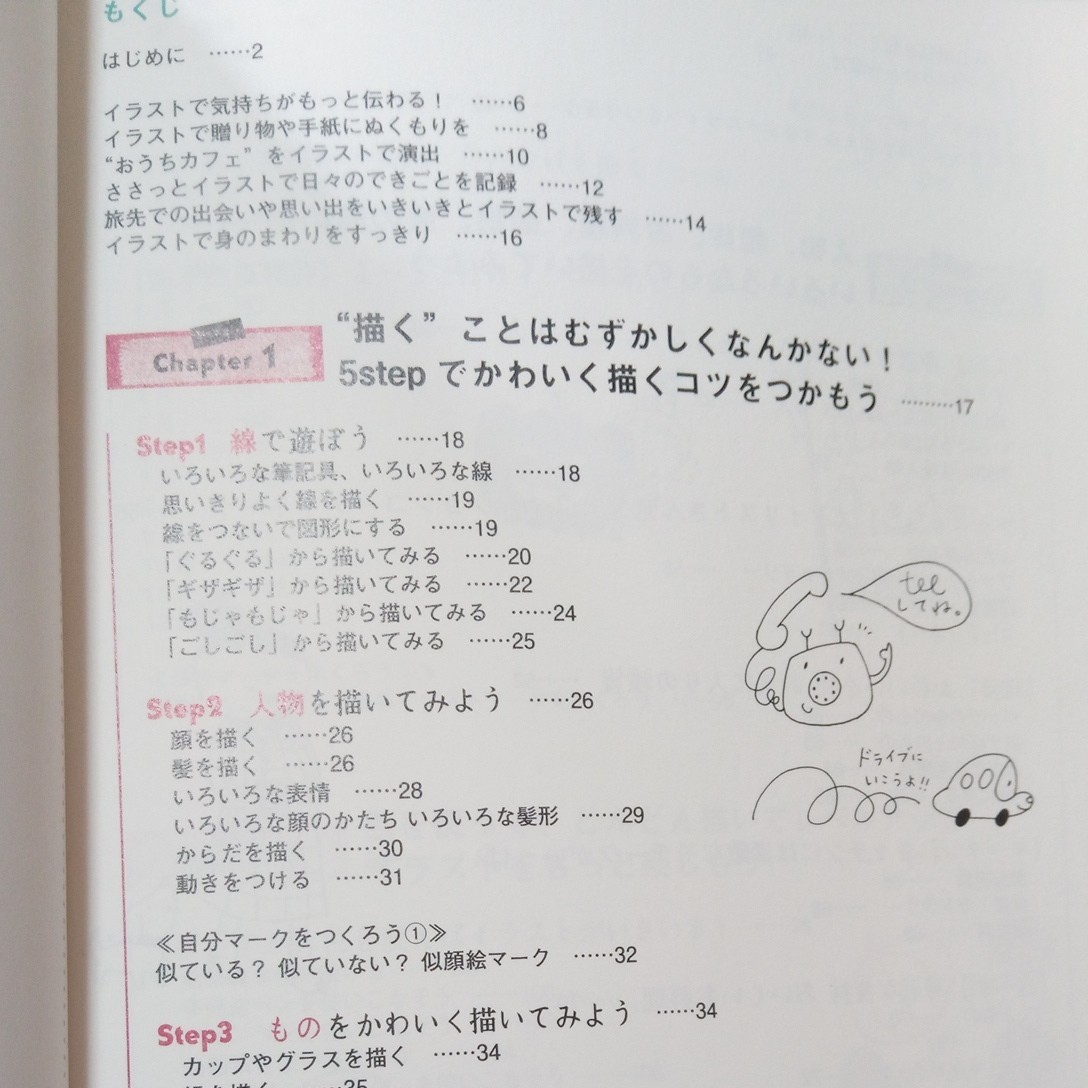 もくじ
はじめに ……2
イラストで気持ちがもっと伝わる! ……6
イラストで贈り物や手紙にぬくもりを ……8
“おうちカフェ”をイラストで演出 ……10
ささっとイラストで日々のできごとを記録 ……12
旅先での出会いや思い出をいきいきとイラストで残す ……14
イラストで身のまわりをすっきり ……16
Chapter 1
“描く”ことはむずかしくなんかない!
5stepでかわいく描くコツをつかもう ………17
Step1 線で遊ぼう ……18
いろいろな筆記具、いろいろな線 ……18
思いきりよく線を描く ……19
線をつないで図形にする ……19
「ぐるぐる」から描いてみる ……20
「ギザギザ」から描いてみる ……22
「もじゃもじゃ」から描いてみる ……24
「ごしごし」から描いてみる ……25
tel
してね。
Step2 人物を描いてみよう ……26
顔を描く ……26
髪を描く ……26
いろいろな表情 ……28
いろいろな顔のかたち いろいろな髪形 ……29
からだを描く ……30
動きをつける ……31
ドライブに
いこうよ!!
≪自分マークをつくろう①≫
似ている? 似ていない? 似顔絵マーク ……32
Step3 ものをかわいく描いてみよう ……34
カップやグラスを描く ……34